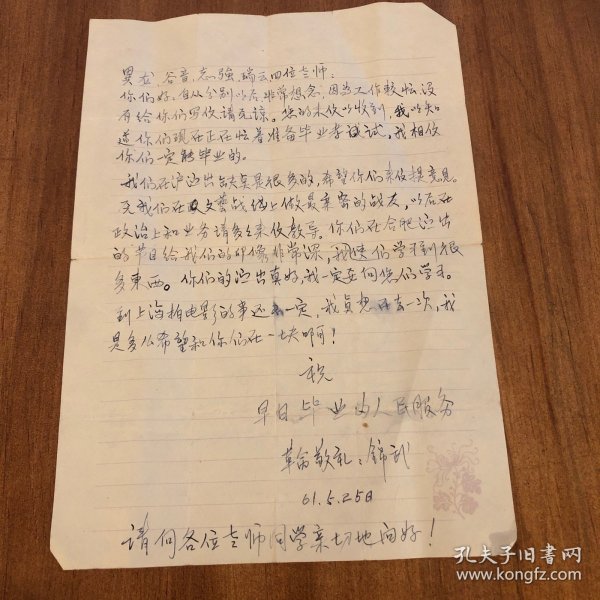 谷音、志强、瑞云四位老师：
你们好，自从分别以后非常想念，因为工作较忙没
有给你们写信，请元谅。您的来信以收到，我以知
道你们现在正在忙着准备毕业考试，我相信
你们一定能毕业的。
我们在沪演出缺点是很多的，希望你们来信提意见。
天我们在文艺战线上做最亲密的战友，以后在
政治上和业务请多多来信教导。你们在合肥演出
的节目给我们的印像非常深，我从你们学习到很
多东西。你们的演出真好，我一定要向您们学习。
到上海拍电影的事还不一定，我真想再去一次，我
是多么希望和你们在一块啊！
祝
早日毕业为人民服务
革命敬礼：锦武
61.5.25日
请向各位老师同学亲切地问好！
孔夫子旧书网
www.kongfz.com